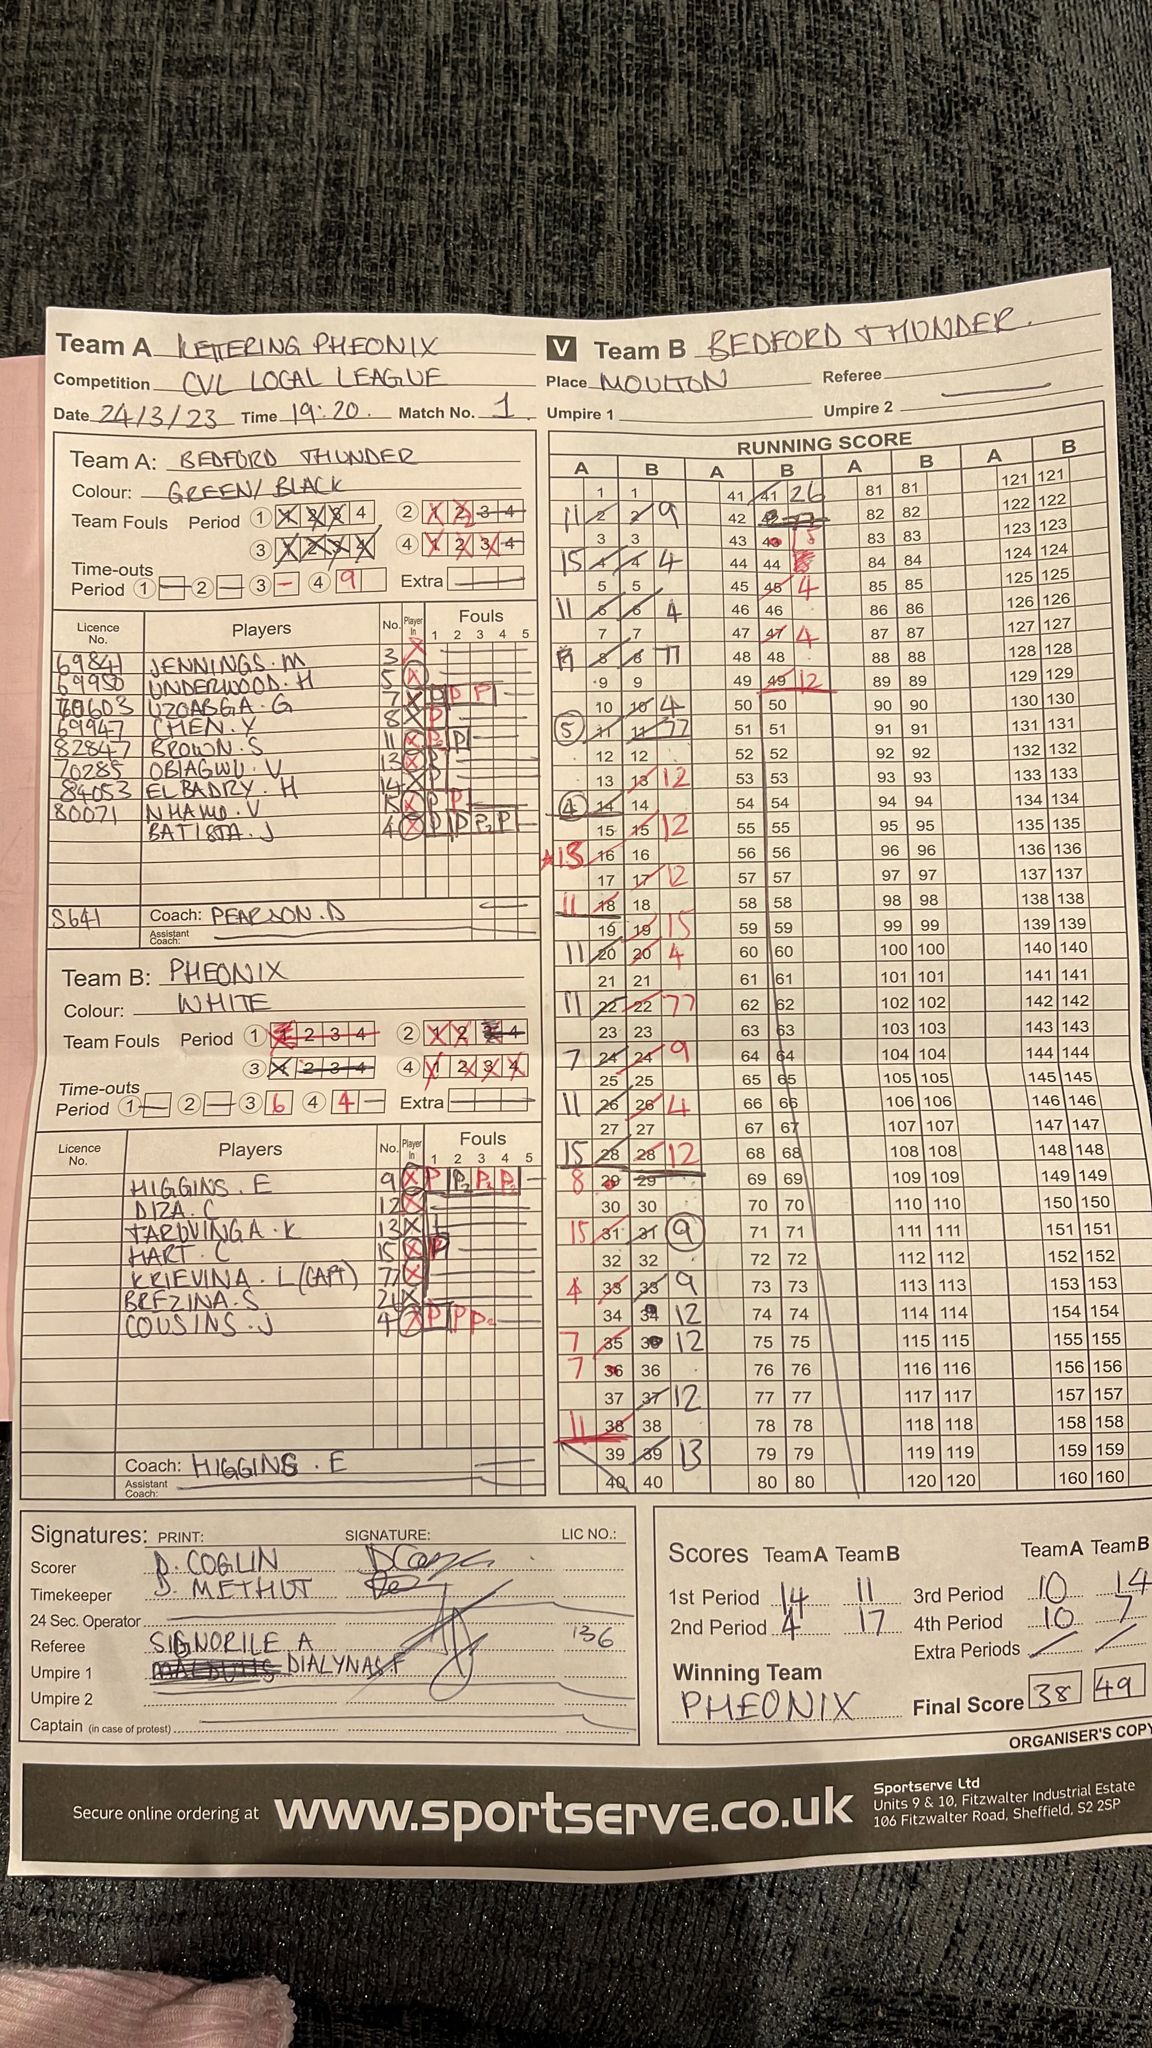 Team A KETTERING PHEONIX V Team B BEDFORD THUNDER.
Competition CVL LOCAL LEAGUE Place MOULTON Referee
Date 24/3/23 Time 19:20. Match No. 1 Umpire 1 Umpire 2
Team A: BEDFORD THUNDER
Colour: GREEN/BLACK
Team Fouls Period 1 1 2 3 4 2 1 2 3 4
3 1 2 3 4 4 1 2 3 4
Time-outs
Period 1 2 3 4 9 Extra
Licence No. Players No. Player In Fouls 1 2 3 4 5
69841 JENNINGS. M 3
69950 UNDERWOOD. H 5
UZOABGA. G 7 P P P
69947 CHEN. Y 8 P
82847 BROWN. S 11 P2 P
70285 OBIAGWU. V 13 P
84053 EL BADRY. H 14 P
80071 NHAMO. V 15 P P
BATISTA. J 4 P P P2 P
S641 Coach: PEARSON. D
Assistant Coach:
Team B: PHEONIX
Colour: WHITE
Team Fouls Period 1 1 2 3 4 2 1 2 3 4
3 1 2 3 4 4 1 2 3 4
Time-outs
Period 1 2 3 6 4 4 Extra
Licence No. Players No. Player In Fouls 1 2 3 4 5
HIGGINS. E 9 P P2 P2 P2
DIZA. C 12
TARUVINGA. K 13
HART. C 15 P
KRIEVINA. L (CAPT) 77
BREZINA. S 26
COUSINS. J 4 P P P2
Coach: HIGGINS. E
Assistant Coach:
RUNNING SCORE
A B A B A B A B
1 1 41 41 26 81 81 121 121
11 2 2 9 42 42 82 82 122 122
3 3 43 43 15 83 83 123 123
15 4 4 4 44 44 84 84 124 124
5 5 45 45 4 85 85 125 125
11 6 6 4 46 46 86 86 126 126
7 7 47 47 4 87 87 127 127
8 8 77 48 48 88 88 128 128
9 9 49 49 12 89 89 129 129
10 10 4 50 50 90 90 130 130
5 11 11 77 51 51 91 91 131 131
12 12 52 52 92 92 132 132
13 13 12 53 53 93 93 133 133
4 14 14 54 54 94 94 134 134
15 15 12 55 55 95 95 135 135
13 16 16 56 56 96 96 136 136
17 17 12 57 57 97 97 137 137
11 18 18 58 58 98 98 138 138
19 19 15 59 59 99 99 139 139
11 20 20 4 60 60 100 100 140 140
21 21 61 61 101 101 141 141
11 22 22 77 62 62 102 102 142 142
23 23 63 63 103 103 143 143
7 24 24 9 64 64 104 104 144 144
25 25 65 65 105 105 145 145
11 26 26 4 66 66 106 106 146 146
27 27 67 67 107 107 147 147
15 28 28 12 68 68 108 108 148 148
8 29 29 69 69 109 109 149 149
30 30 70 70 110 110 150 150
15 31 31 9 71 71 111 111 151 151
32 32 72 72 112 112 152 152
4 33 33 9 73 73 113 113 153 153
34 34 12 74 74 114 114 154 154
7 35 35 12 75 75 115 115 155 155
7 36 36 76 76 116 116 156 156
37 37 12 77 77 117 117 157 157
11 38 38 78 78 118 118 158 158
39 39 13 79 79 119 119 159 159
40 40 80 80 120 120 160 160
Signatures: PRINT: SIGNATURE: LIC NO.:
Scorer D. COGLIN
Timekeeper D. METHUT
24 Sec. Operator
Referee SIGNORILE A 136
Umpire 1 DIALYNAS F
Umpire 2
Captain (in case of protest)
Scores Team A Team B Team A Team B
1st Period 14 11 3rd Period 10 14
2nd Period 4 17 4th Period 10 7
Extra Periods
Winning Team
PHEONIX Final Score 38 49
ORGANISER'S COPY
Secure online ordering at www.sportserve.co.uk
Sportserve Ltd
Units 9 & 10, Fitzwalter Industrial Estate
106 Fitzwalter Road, Sheffield, S2 2SP